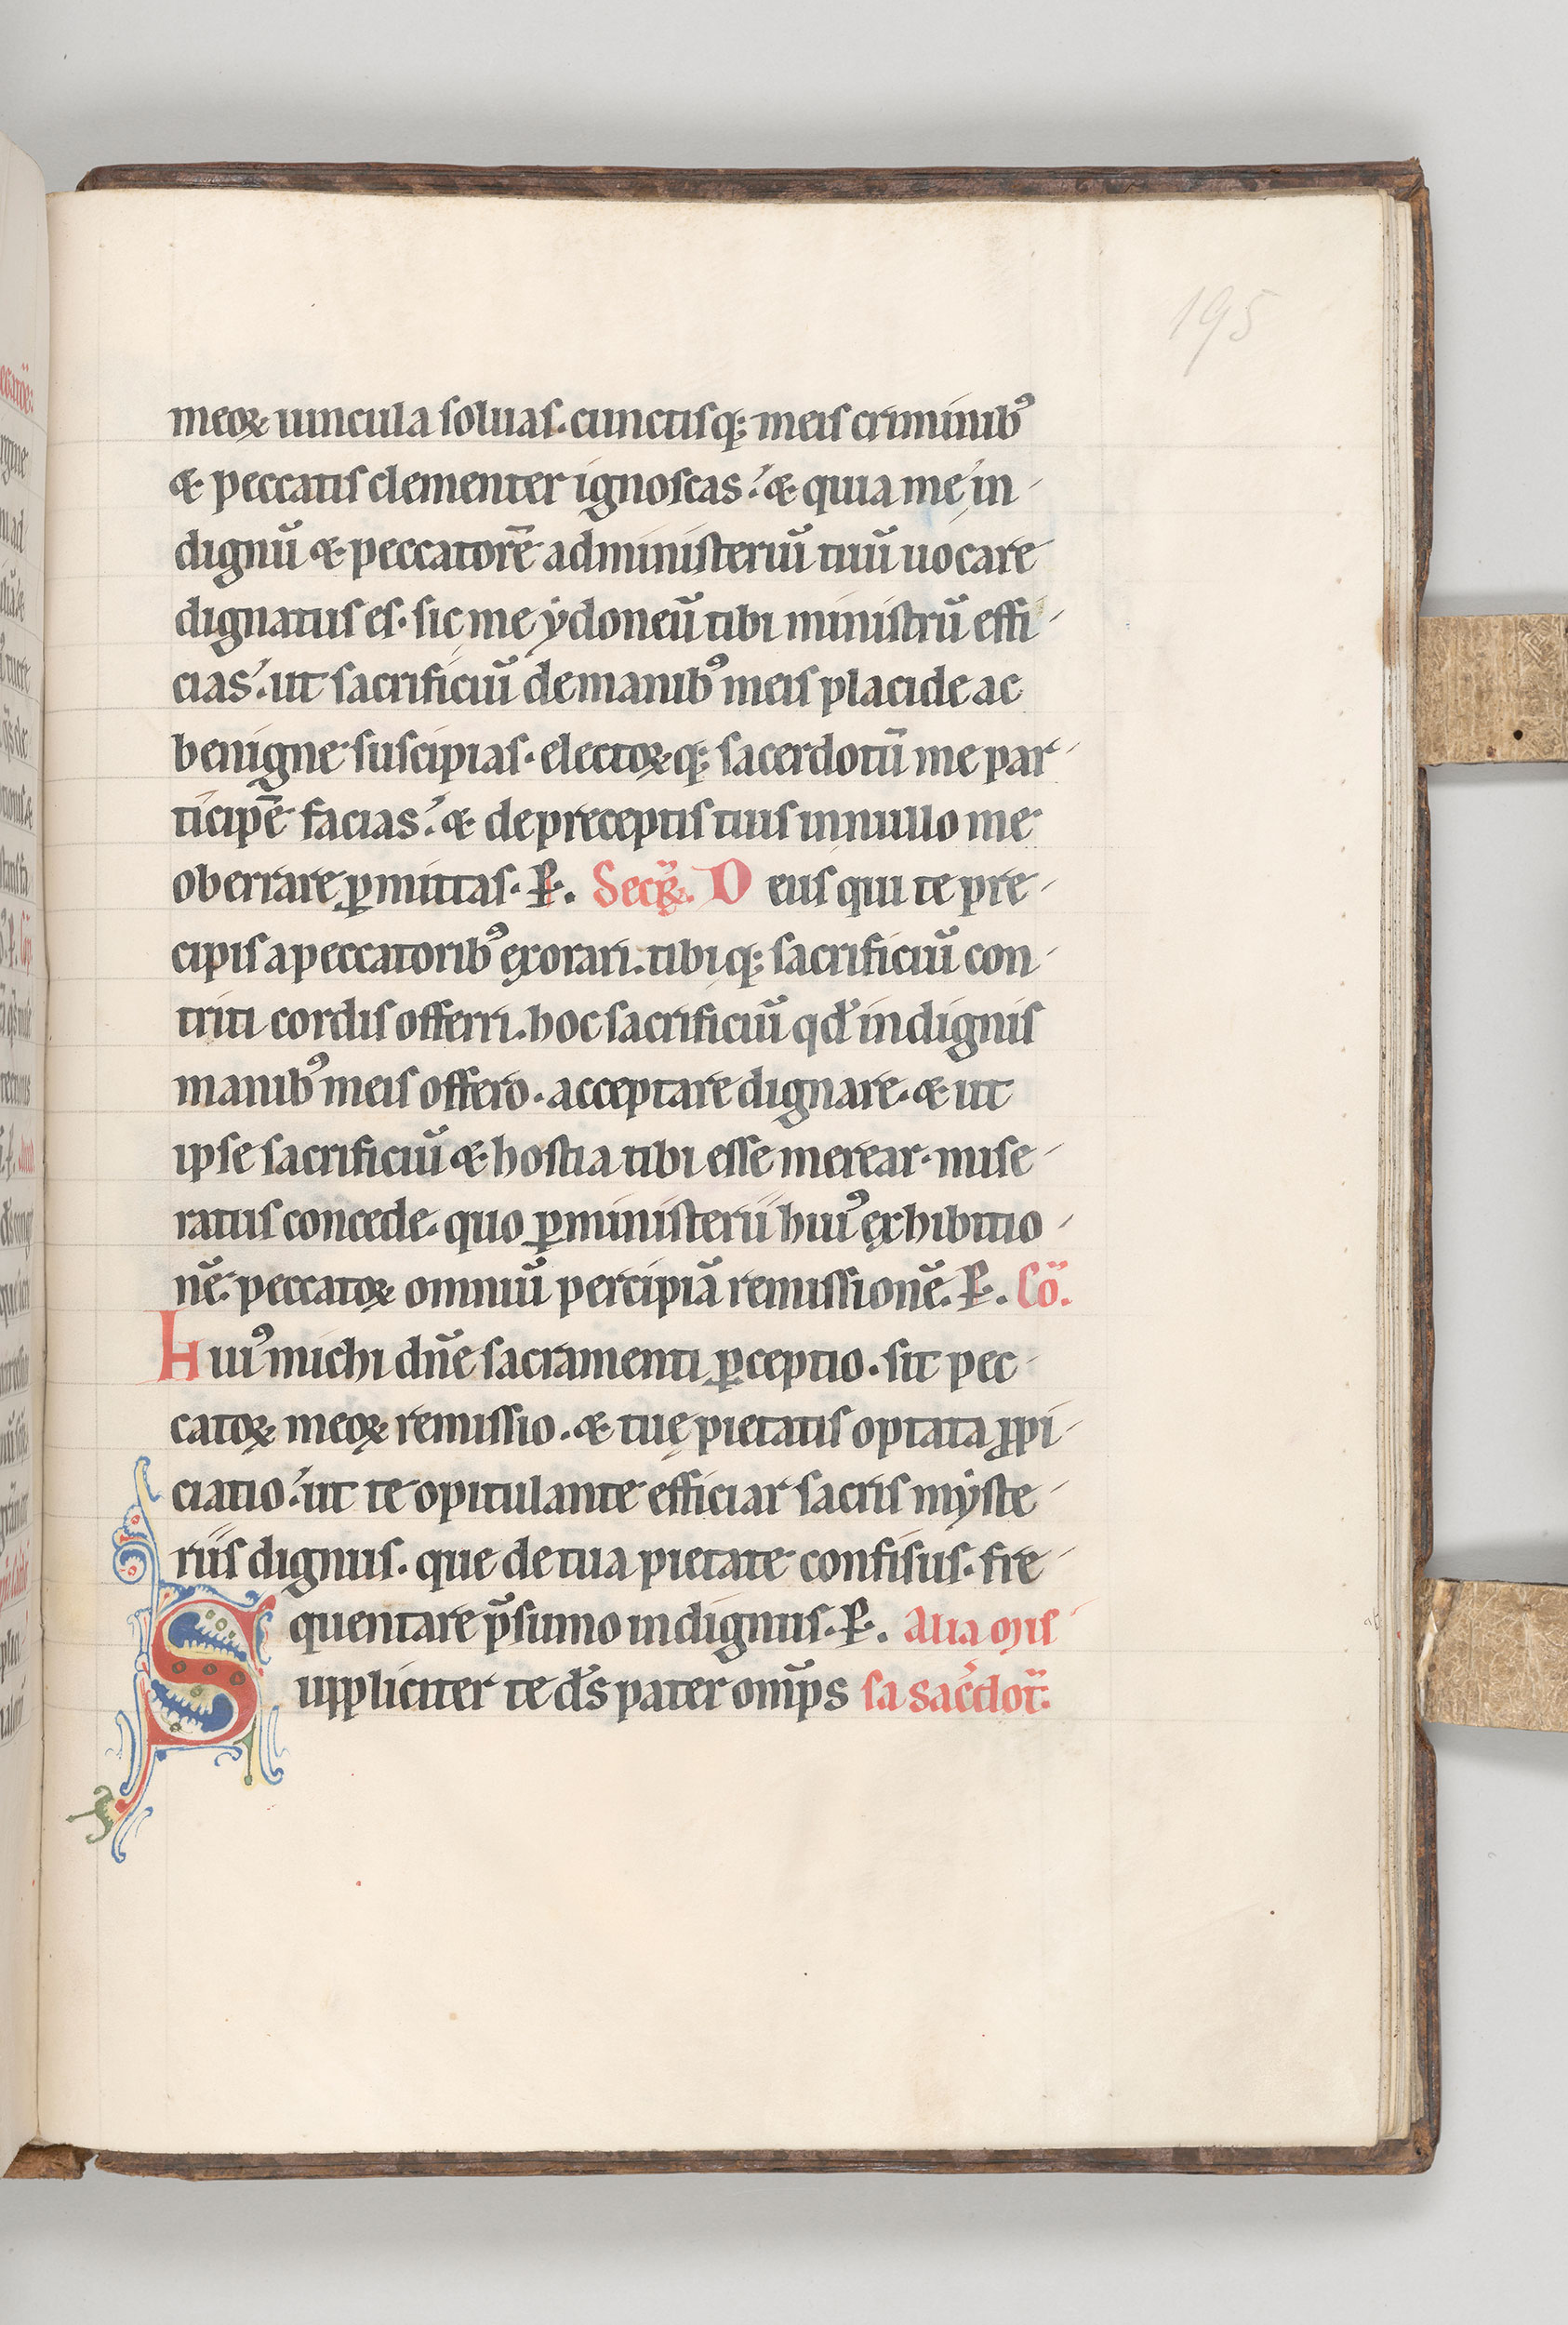 195
meoꝝ uincula soluas. cunctisq; meis criminibꝰ
& peccatis clementer ignoscas. & quia me in-
dignū & peccatorē administeriū tuū uocare
dignatus es. sic me ẏdoneū tibi ministrū effi-
cias. ut sacrificiū demanibꝰ meis placide ac
benigne suscipias. electoꝝq; sacerdotū me par-
ticipē facias. & depreceptis tuis innullo me
oberrare ꝑmittas. P. Secꝝ. D eus qui te pre-
cipis apeccatoribꝰ exorari. tibiq; sacrificiū con-
triti cordis offerri. hoc sacrificiū qd̄ indignis
manibꝰ meis offero. acceptare dignare. & ut
ipse sacrificiū & hostia tibi esse merear. mise-
ratus concede. quo ꝑministerii huiꝰ exhibitio-
nē. peccatoꝝ omniū percipiā remissionē. P. Cō.
Huiꝰ michi dn̄e sacramenti ꝑceptio. sit pec-
catoꝝ meoꝝ remissio. & tuę pietatis optata ꝓpi-
ciatio. ut te opitulante efficiar sacris mẏste-
riis dignus. que detua pietate confisus. fre-
quentare p̄sumo indignus. P. Alia mis
Suppliciter te d̄s pater omp̄s sa sac̄dot̄.